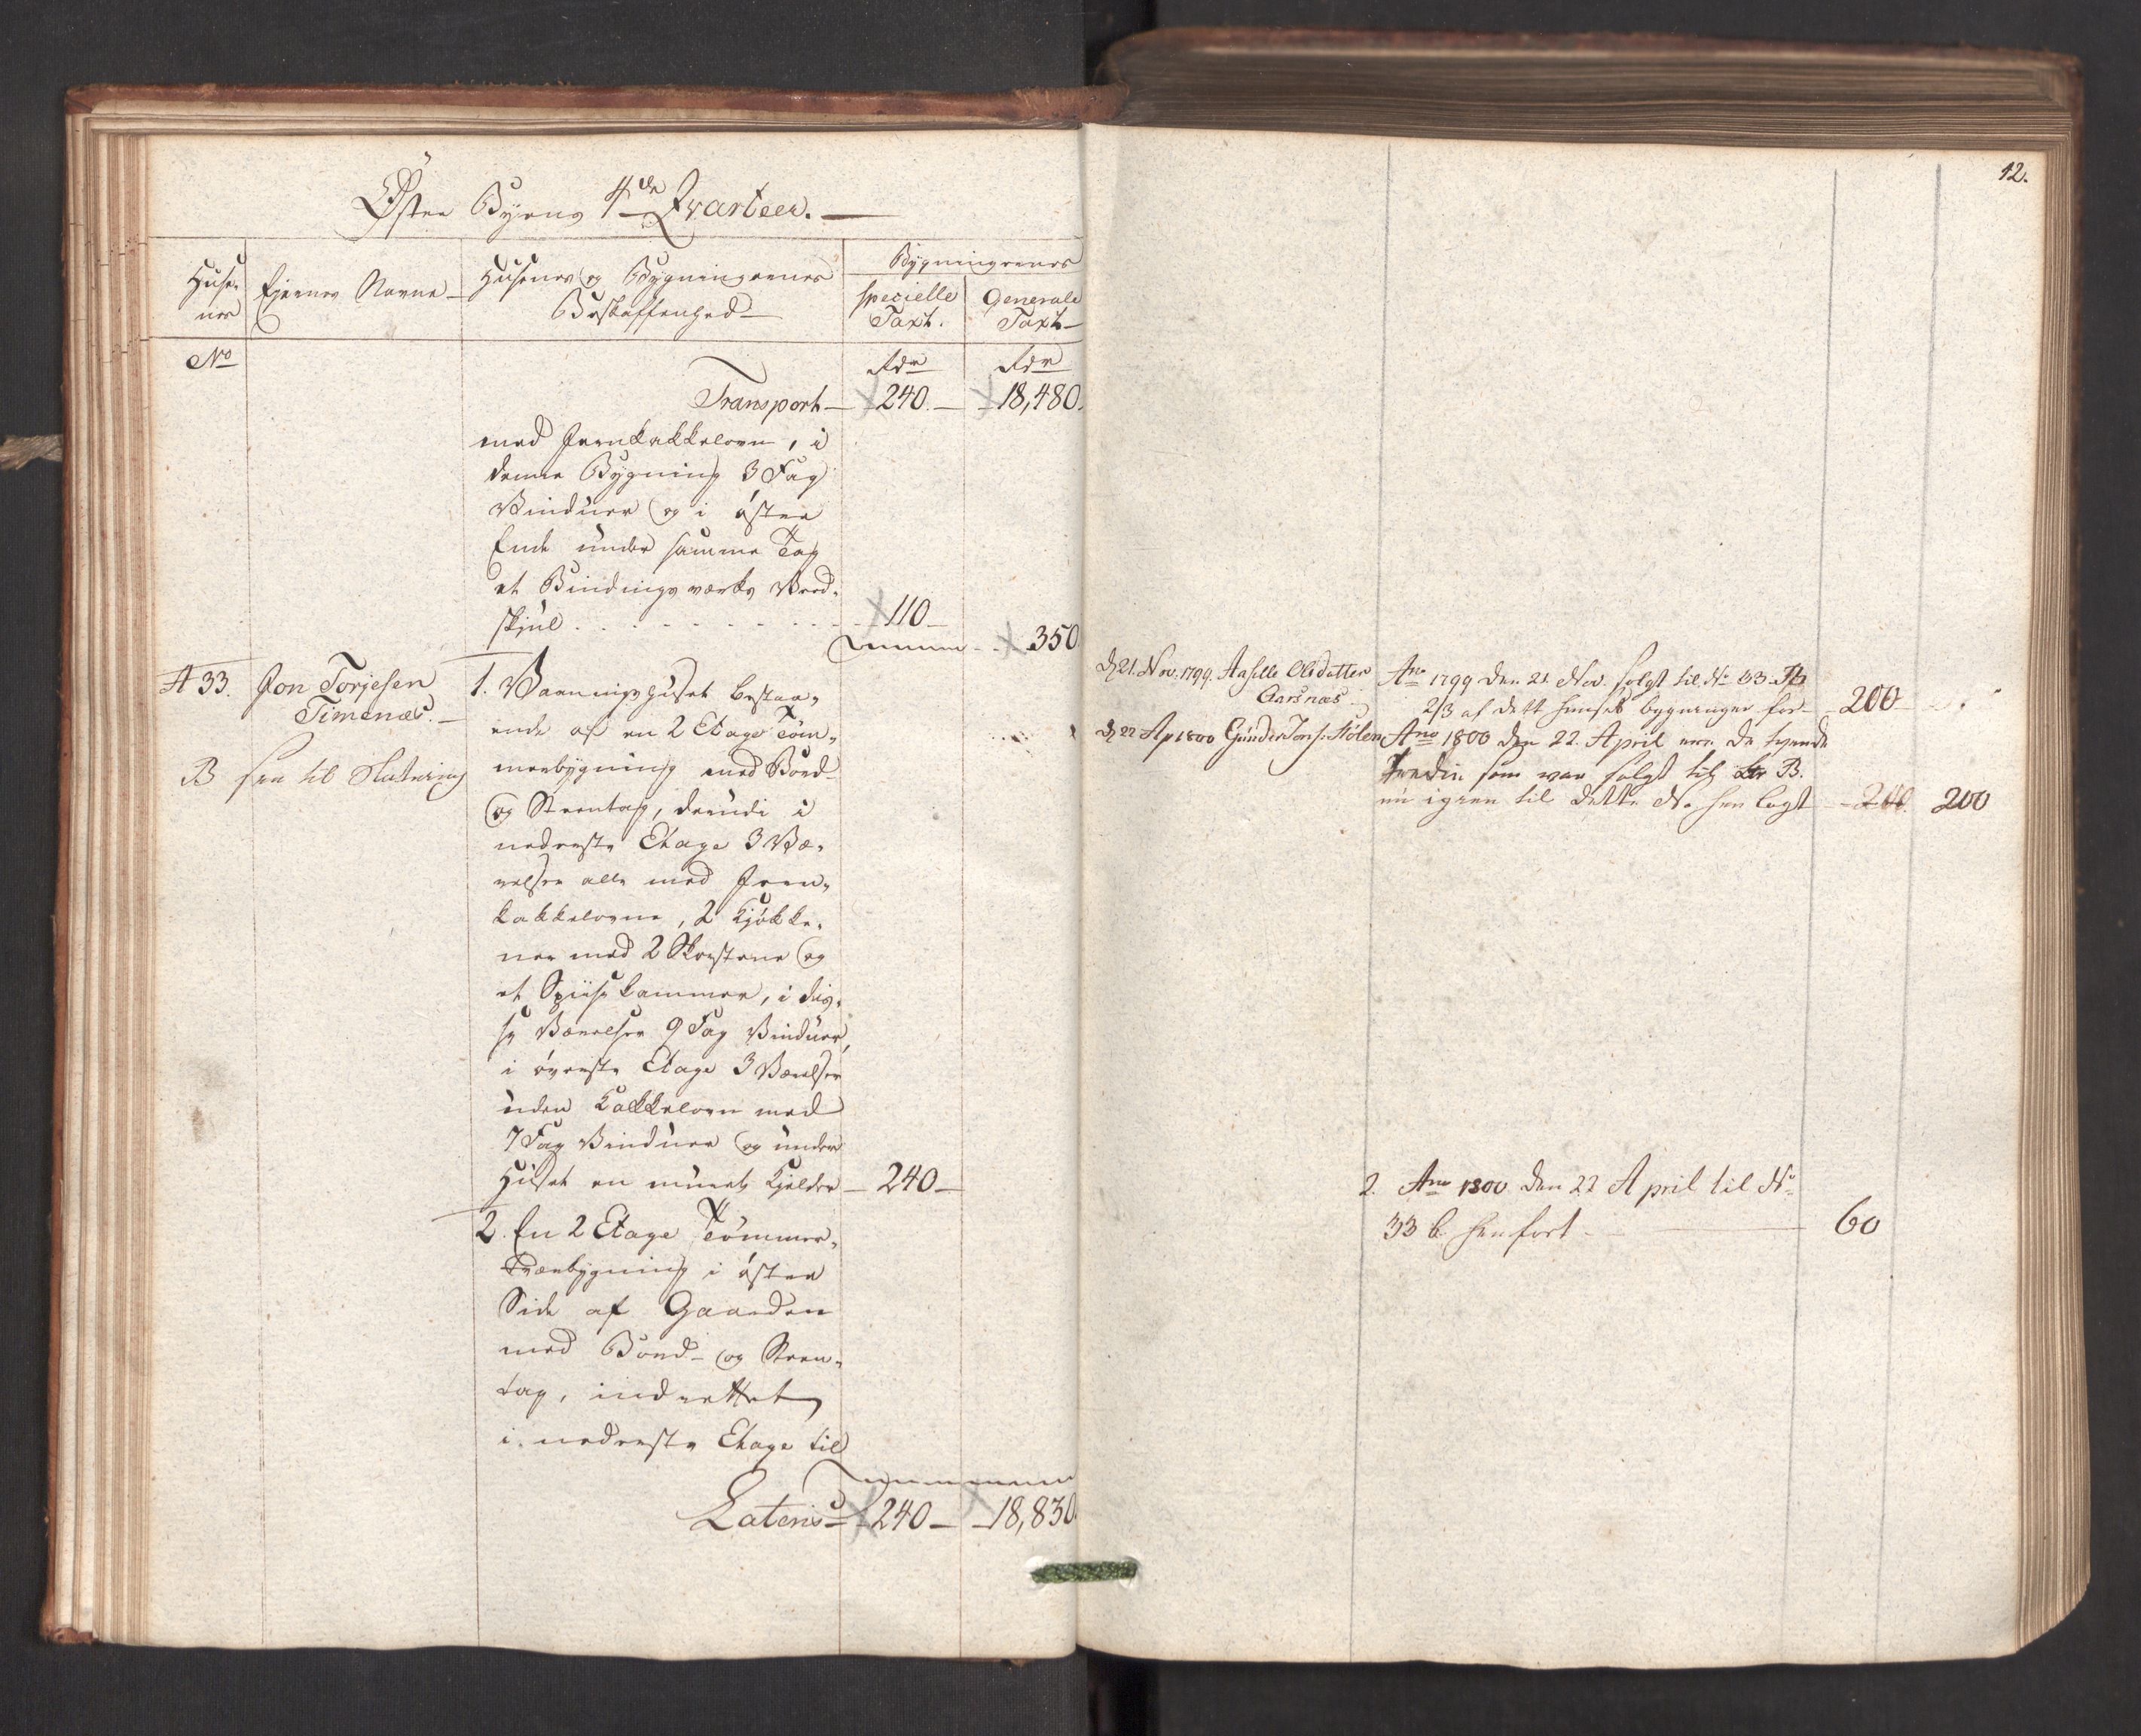 Øster Byens 4de Qvarteer.
Huse-
nes
Ejernes Navne
Husenes og Bygningernes
Beskaffenhed
Bygningernes
specielle
Taxt.
Generale
Taxt
No
Rdr
Rdr
Transport 240. 18,480.
med Jernkakkelovn, i
denne Bygning 3 Fag
Vinduer og i øster
Ende under samme Tag
et Bindingsværks Ved-
skjul 110
350
A 33. Jon Torjesen
Timenæs.
B see til Slutning
1. Vaaningshuset bestaa-
ende af en 2 Etage Töm-
merbygning med Bord
og Steentag, derudi i
nederste Etage 3 Væ-
relser alle med Jern-
kakkelovne, 2 Kjøkke-
ner med 2 Skorstene og
et Spiisekammer, i dis-
se Værelser 9 Fag Vinduer,
i øverste Etage 3 Værelser
uden Kakkelovn med
7 Fag Vinduer og under
Huset en muret Kjelder 240
2. En 2 Etage Tömmer-
Tverbygning i øster
Side af Gaarden
med Bord- og Steen-
tag, indrettet
i nederste Etage til
Lateris 240 18,830.
12.
d. 21. Nov. 1799. Aasille Olsdatter
Aarsnæs
d 22 Ap 1800 Gunder Jons. Kolen
Ano 1799 den 21 Nov. solgt til No 33 B
2/3 af dette huuses bygninger for 200
Ano 1800 den 22. April ere de tvende
Tredie som var solgt til Ltr B.
nu igien til dette No henlagt 200. 200
2. Ano 1800 den 22 April til No
33 b henfört 60